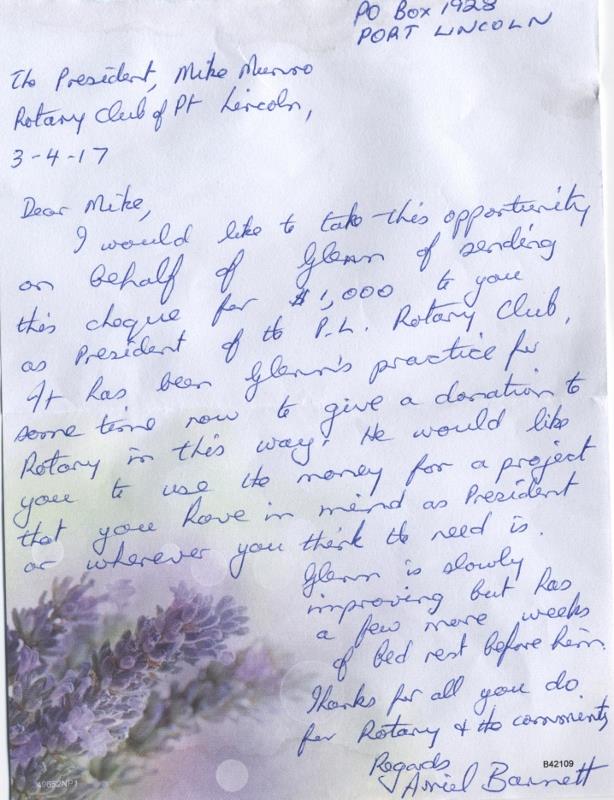 PO Box 1928
PORT LINCOLN
The President, Mike Munro
Rotary Club of Pt Lincoln,
3-4-17
Dear Mike,
I would like to take this opportunity
on behalf of Glenn of sending
this cheque for $1,000 to you
as President of the P.L. Rotary Club.
It has been Glenn's practice for
some time now to give a donation to
Rotary in this way. He would like
you to use the money for a project
that you have in mind as President
or wherever you think the need is.
Glenn is slowly
improving but has
a few more weeks
of bed rest before him.
Thanks for all you do
for Rotary & the community
Regards
Barnett
B42109
49652NP1